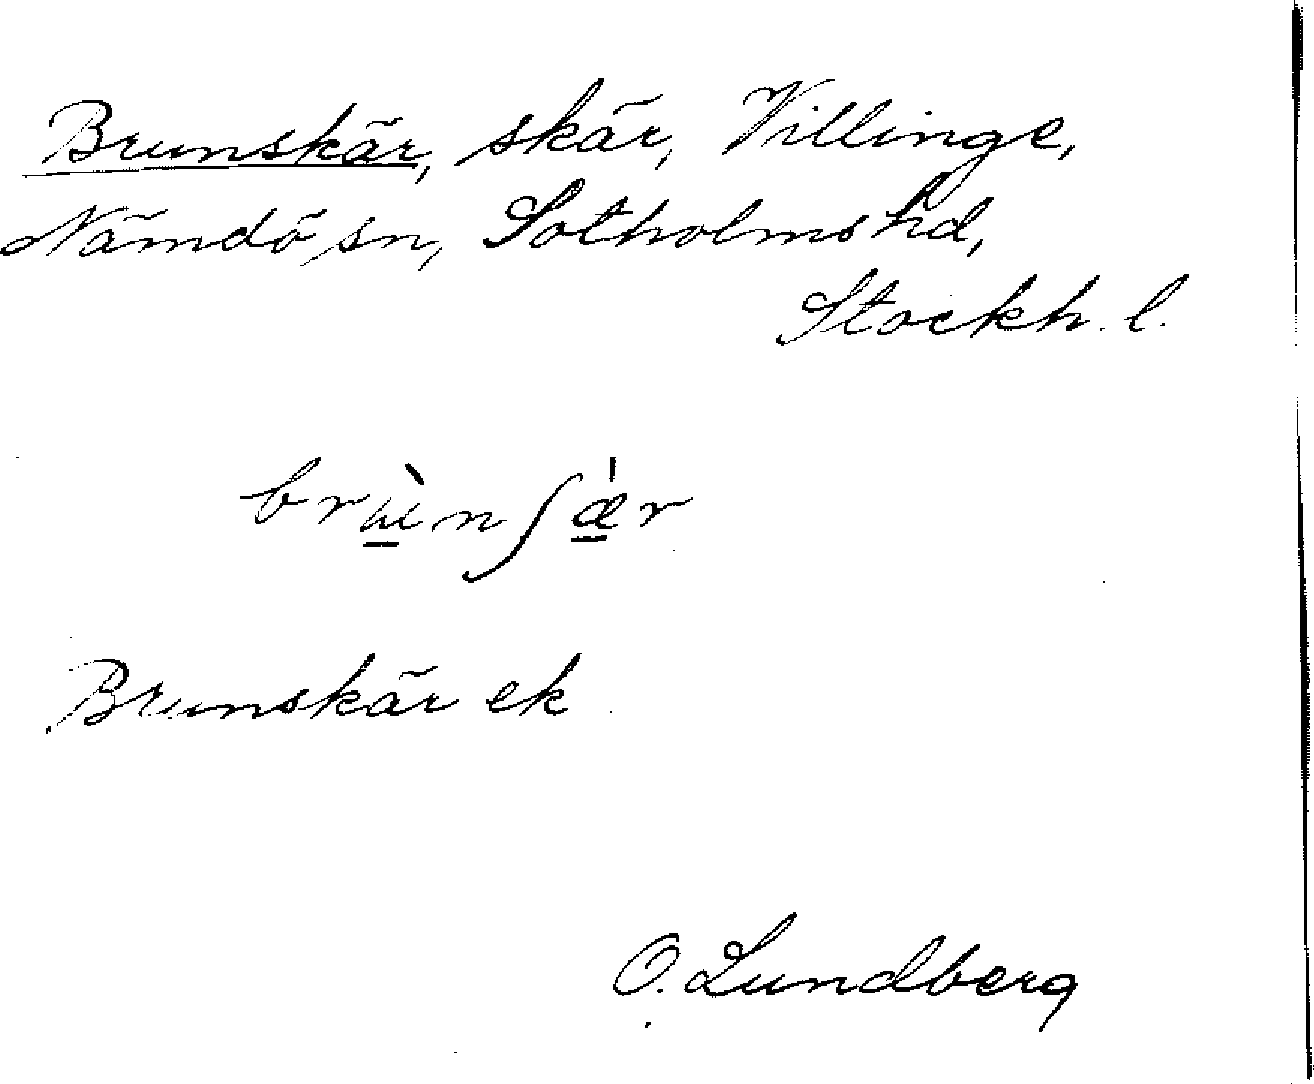 Brunskär, skär, Villinge,
Nämdö sn, Sotholms hd,
Stockh. l.
Brunskär ek
O. Lundberg